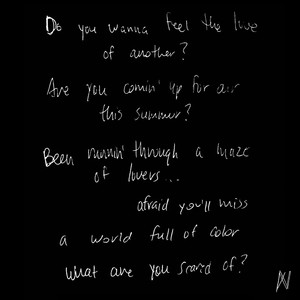 Do you wanna feel the love
of another?
Are you comin' up for air
this summer?
Been runnin' through a maze
of lovers...
afraid you'll miss
a world full of color
what are you scared of?